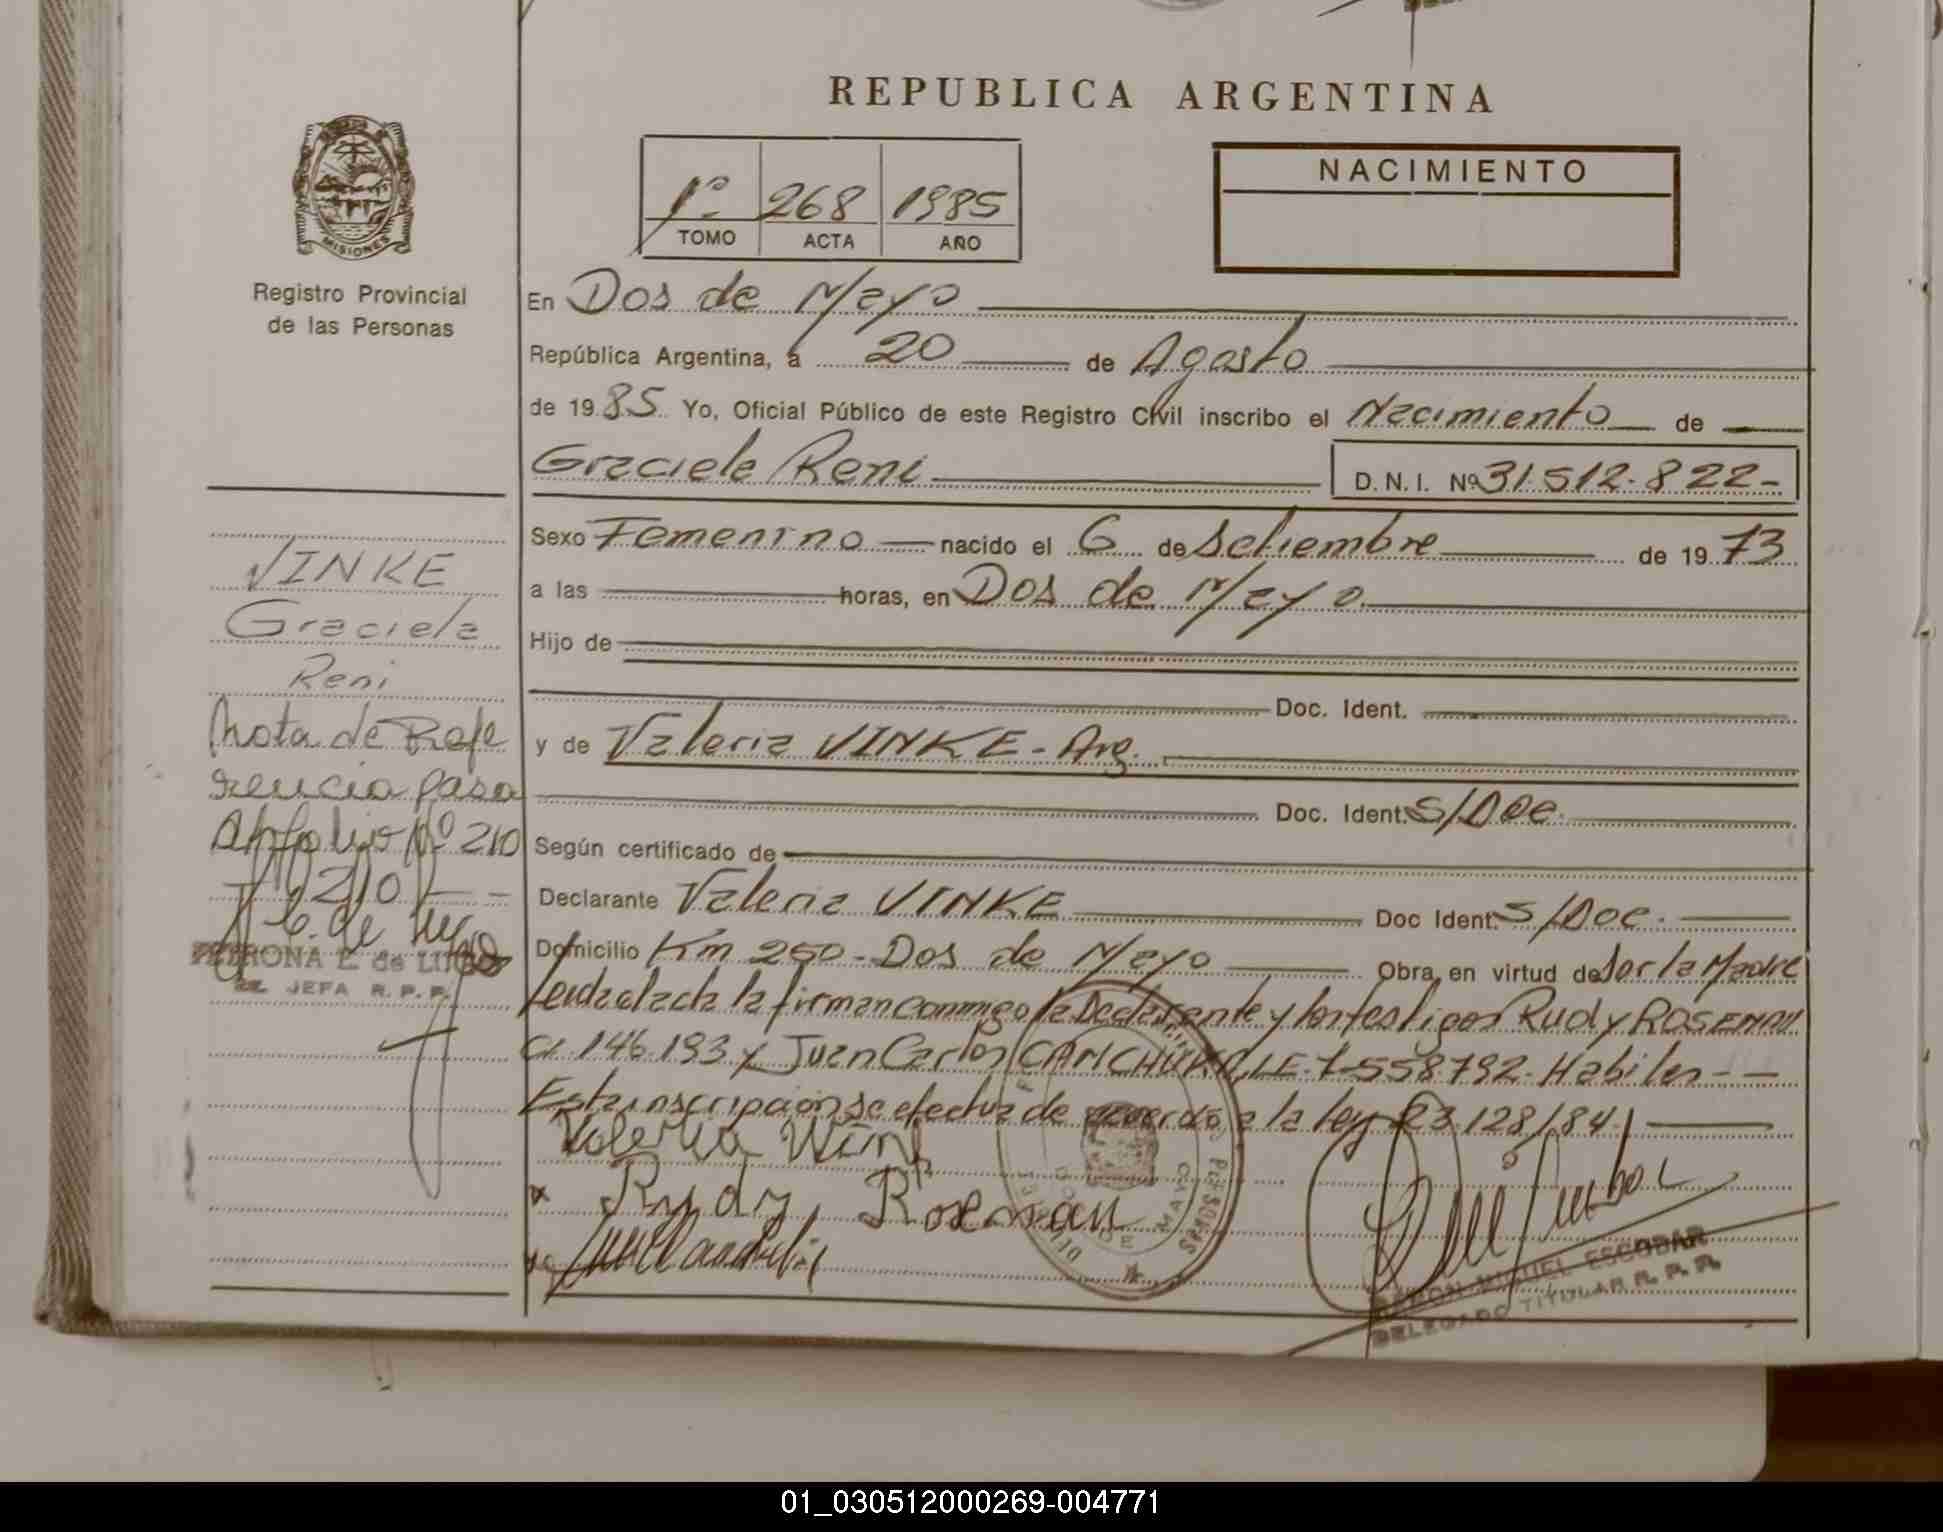 REPUBLICA ARGENTINA
MISIONES
Registro Provincial
de las Personas
1º 268 1985
TOMO ACTA AÑO
NACIMIENTO
En Dos de Mayo
República Argentina, a 20 de Agosto
de 1985 Yo, Oficial Público de este Registro Civil inscribo el Nacimiento de
Graciela Reni D.N.I. Nº 31.512.822-
Sexo Femenino nacido el 6 de Setiembre de 1973
a las horas, en Dos de Mayo
Hijo de
Doc. Ident.
y de Valeria VINKE - Arg.
Doc. Ident. S/Doc.
Según certificado de
Declarante Valeria VINKE Doc Ident. S/Doc.
Domicilio Km 250 - Dos de Mayo Obra en virtud de ser la Madre
Leida el acta la firman conmigo la Declarante y los testigos Rudy ROSEMAN
CI. 146.193 y Juan Carlos LE. 7-558792. Habiles --
Esta inscripción se efectua de acuerdo a la ley 23.128/84.
Valeria
Rudy Roseman
RAMON MIGUEL ESCOBAR
DELEGADO TITULAR R. P. P.
VINKE
Graciela
Reni
Nota de Refe
rencia pasa
al folio Nº 210
210
PETRONA E. de LUGO
JEFA R. P. P.
DOS DE MAYO
01_030512000269-004771